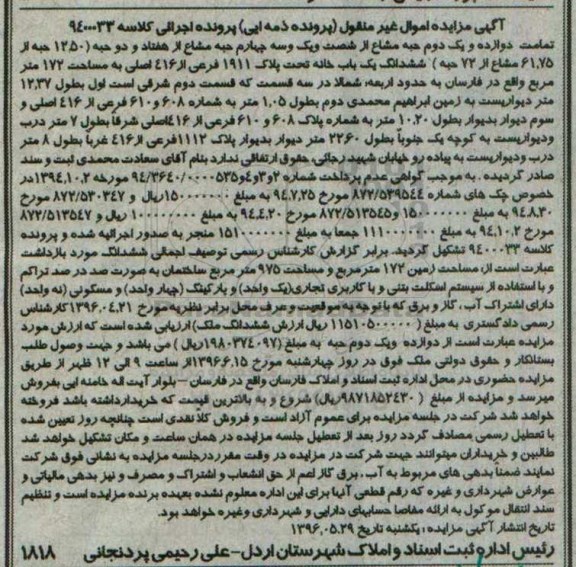 آگهی مزایده اموال غیر منقول (پرونده ذمه ایی) پرونده اجرائی کلاسه ۹۴۰۰۰۳۳
تمامت دوازده و یک دوم حبه مشاع از شصت ویک وسه چهارم حبه مشاع از هفتاد و دو حبه (۱۲.۵۰ حبه از
۶۱.۷۵ مشاع از ۷۲ حبه ) ششدانگ یک باب خانه تحت پلاک ۱۹۱۱ فرعی از۴۱۶ اصلی به مساحت ۱۷۲ متر
مربع واقع در فارسان به حدود اربعه: شمالا در سه قسمت که قسمت دوم شرقی است اول بطول ۱۲.۳۷
متر دیواریست به زمین ابراهیم محمدی دوم بطول ۱.۰۵ متر به شماره ۶۰۸ و ۶۱۰ فرعی از ۴۱۶ اصلی و
سوم دیوار بدیوار بطول ۱۰.۲۰ متر به شماره پلاک ۶۰۸ و ۶۱۰ فرعی از ۴۱۶اصلی شرقا بطول ۷ متر درب
ودیواریست به کوچه یک جنوباً بطول ۲۲.۶۰ متر دیوار بدیوار پلاک ۱۱۱۲فرعی از۴۱۶ غرباً بطول ۸ متر
درب ودیواریست به پیاده رو خیابان شهید رجائی، حقوق ارتفاقی ندارد بنام آقای سعادت محمدی ثبت و سند
صادر گردیده . به موجب گواهی عدم پرداخت شماره ۲و۳و۴و۹۴/۳۶۴۰/۰۰۰۰۵۳۵ مورخه ۱۳۹۴.۱۰.۲در
خصوص چک های شماره ۸۷۲/۵۳۹۵۴۴ مورخ ۹۴.۷.۲۵ به مبلغ ریال و ۸۷۲/۵۳۰۳۴۷ مورخ
۹۴.۸.۳۰ به مبلغ و۸۷۲/۵۱۳۵۴۵ مورخ ۹۴.۴.۲۰ به مبلغ ریال و ۸۷۲/۵۱۳۵۴۷
مورخ ۹۴.۱۰.۲ به مبلغ جمعا به مبلغ منجر به صدور اجرائیه شده و پرونده
کلاسه ۹۴۰۰۰۳۳ تشکیل گردید. برابر گزارش کارشناس رسمی توصیف اجمالی ششدانگ مورد بازداشت
عبارت است از: مساحت زمین ۱۷۲ مترمربع و مساحت ۹۷۵ متر مربع ساختمان به صورت صد در صد تراکم
و با استفاده از سیستم اسکلت بتنی و با کاربری تجاری(یک واحد) و پارکینگ (چهار واحد) و مسکونی (نه واحد)
دارای اشتراک آب ، گاز و برق که با توجه به موقعیت و عرف محل برابر نظریه مورخ ۱۳۹۶.۰۴.۲۱کارشناس
رسمی دادگستری به مبلغ ( ۱۱۵۱۰۵۰۰۰۰۰ ریال ارزش ششدانگ ملک) ارزیابی شده است که ارزش مورد
مزایده عبارت است از دوازده ویک دوم حبه به مبلغ(۱۹۸۰۳۷۴۰۹۷ریال ) می باشد و جهت وصول طلب
بستانکار و حقوق دولتی ملک فوق در روز چهارشنبه مورخ ۱۳۹۶.۶.۱۵از ساعت ۹ الی ۱۲ ظهر از طریق
مزایده حضوری در محل اداره ثبت اسناد و املاک فارسان واقع در فارسان – بلوار آیت اله خامنه ایی بفروش
میرسد و مزایده از مبلغ ( ۹۸۷۱۸۵۲۴۳۰ریال) شروع و به بالاترین قیمت که خریدارداشته باشد فروخته
خواهد شد شرکت در جلسه مزایده برای عموم آزاد است و فروش کلاً نقدی است چنانچه روز تعیین شده
با تعطیل رسمی مصادف گردد روز بعد از تعطیل جلسه مزایده در همان ساعت و مکان تشکیل خواهد شد
طالبین و خریداران میتوانند جهت شرکت در مزایده در وقت مقرردرجلسه مزایده به نشانی فوق شرکت
نمایند ضمناً بدهی های مربوط به آب ، برق گاز اعم از حق انشعاب و اشتراک و مصرف و نیز بدهی مالیاتی و
عوارض شهرداری و غیره که رقم قطعی آنها برای این اداره معلوم نشده بعهده برنده مزایده است و تنظیم
سند انتقال موکول به ارائه مفاصا حسابهای دارایی و شهرداری وغیره خواهد بود.
تاریخ انتشار آگهی مزایده : یکشنبه تاریخ ۱۳۹۶.۰۵.۲۹
رئیس اداره ثبت اسناد و املاک شهرستان اردل–علی رحیمی پردنجانی ۱۸۱۸